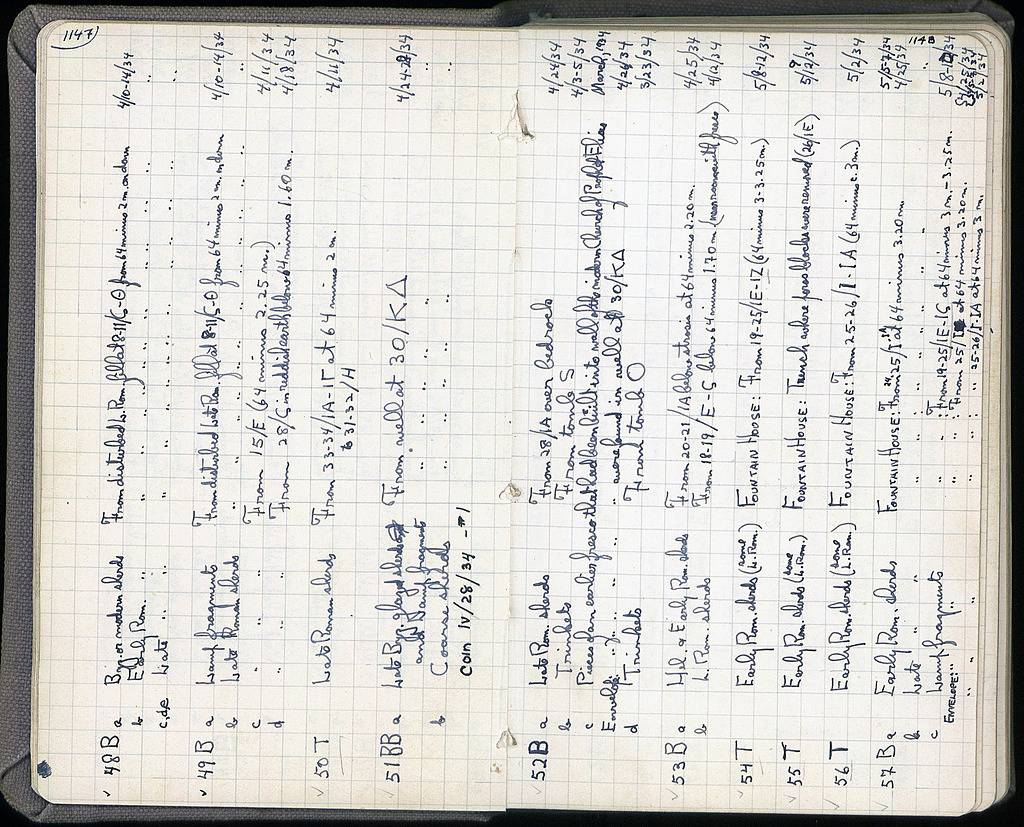 1147
48 B a Byz. or modern sherds From disturbed L. Rom. fill at 8-11/Ϛ-Θ from 64 minus 2 m. on down 4/10-14/34
b Early Rom. " " " " " " " "
c, d, e Late " " " " " " " " "
49 B a Lamp fragments From disturbed Late Rom. fill at 8-11/Ϛ-Θ from 64 minus 2 m. on down 4/10-14/34
b Late Roman sherds " " " " " " "
c " " " From 15/E (64 minus 2.25 m.) 4/11/34
d " " " From 28/Ϛ in reddish earth below 64 minus 1.60 m. 4/18/34
50 T Late Roman sherds From 33-34/IA-IΓ at 64 minus 2 m. 4/11/34
& 31-32/H
51 BB a Late Byz. glazed sherds From well at 30/ΚΔ 4/24-28/34
and lamp fragments
b Coarse sherds " " " " "
COIN IV/28/34 - #1
1148
52 B a Late Rom. sherds From 28/IA over bedrock 4/24/34
b Trinkets From tomb S 4/3-5/34
c Pieces of an earlier fresco that had been built into wall of the modern Church of Prophet Elias March, 1934
Envelope " " " " were found in well at 30/ΚΔ 4/26/34
d Trinkets From tomb O 3/23/34
53 B a Hel. & Early Rom. sherds From 20-21/IA below strosis at 64 minus 2.20 m. 4/25/34
b L. Rom. sherds From 18-19/E-Ϛ below 64 minus 1.70 m. (near room with fresco) 4/12/34
54 T Early Rom. sherds (some L. Rom.) FOUNTAIN HOUSE: From 19-25/IE-IZ (64 minus 3-3.25 m.) 5/8-12/34
55 T Early Rom. sherds (some L. Rom.) FOUNTAIN HOUSE: Trench where poros blocks were removed (26/IE) 5/9/34
56 T Early Rom. sherds (some L. Rom.) FOUNTAIN HOUSE: From 25-26/I-IA (64 minus c. 3 m.) 5/2/34
57 B a Early Rom. sherds FOUNTAIN HOUSE: From 25/I at 64 minus 3.20 m. 5/5-7/34
b Late " " " " 4/25/34
c Lamp fragments " " : From 19-25/IE-IϚ at 64 minus 3 m. - 3.25 m. 5/8-12/34
ENVELOPE: " " " " : From 25/I at 64 minus 3.20 m. 4/25/34
" " " " " 25-26/I-IA at 64 minus 3 m. 5/2/34